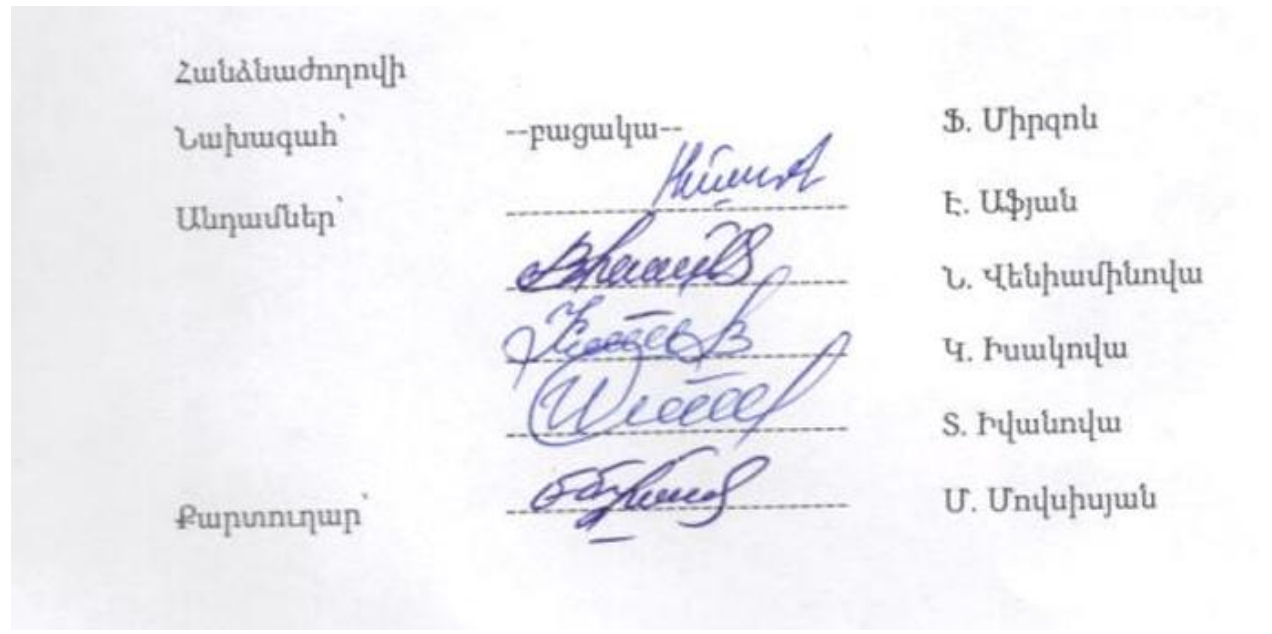 Հանձնաժողովի
Նախագահ՝ --բացակա-- Ֆ. Միրզոև
Անդամներ՝ Է. Աֆյան
Ն. Վենիամինովա
Կ. Իսակովա
Տ. Իվանովա
Քարտուղար՝ Մ. Մովսիսյան